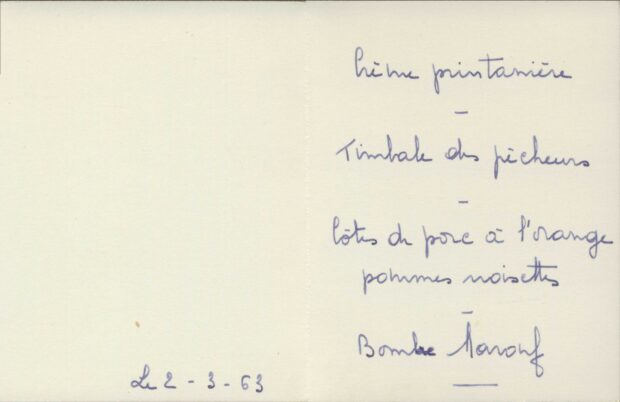 Crème printanière
–
Timbale des pêcheurs
–
Côtes de porc à l'orange
pommes noisettes
–
Bombe
Le 2 - 3 - 63